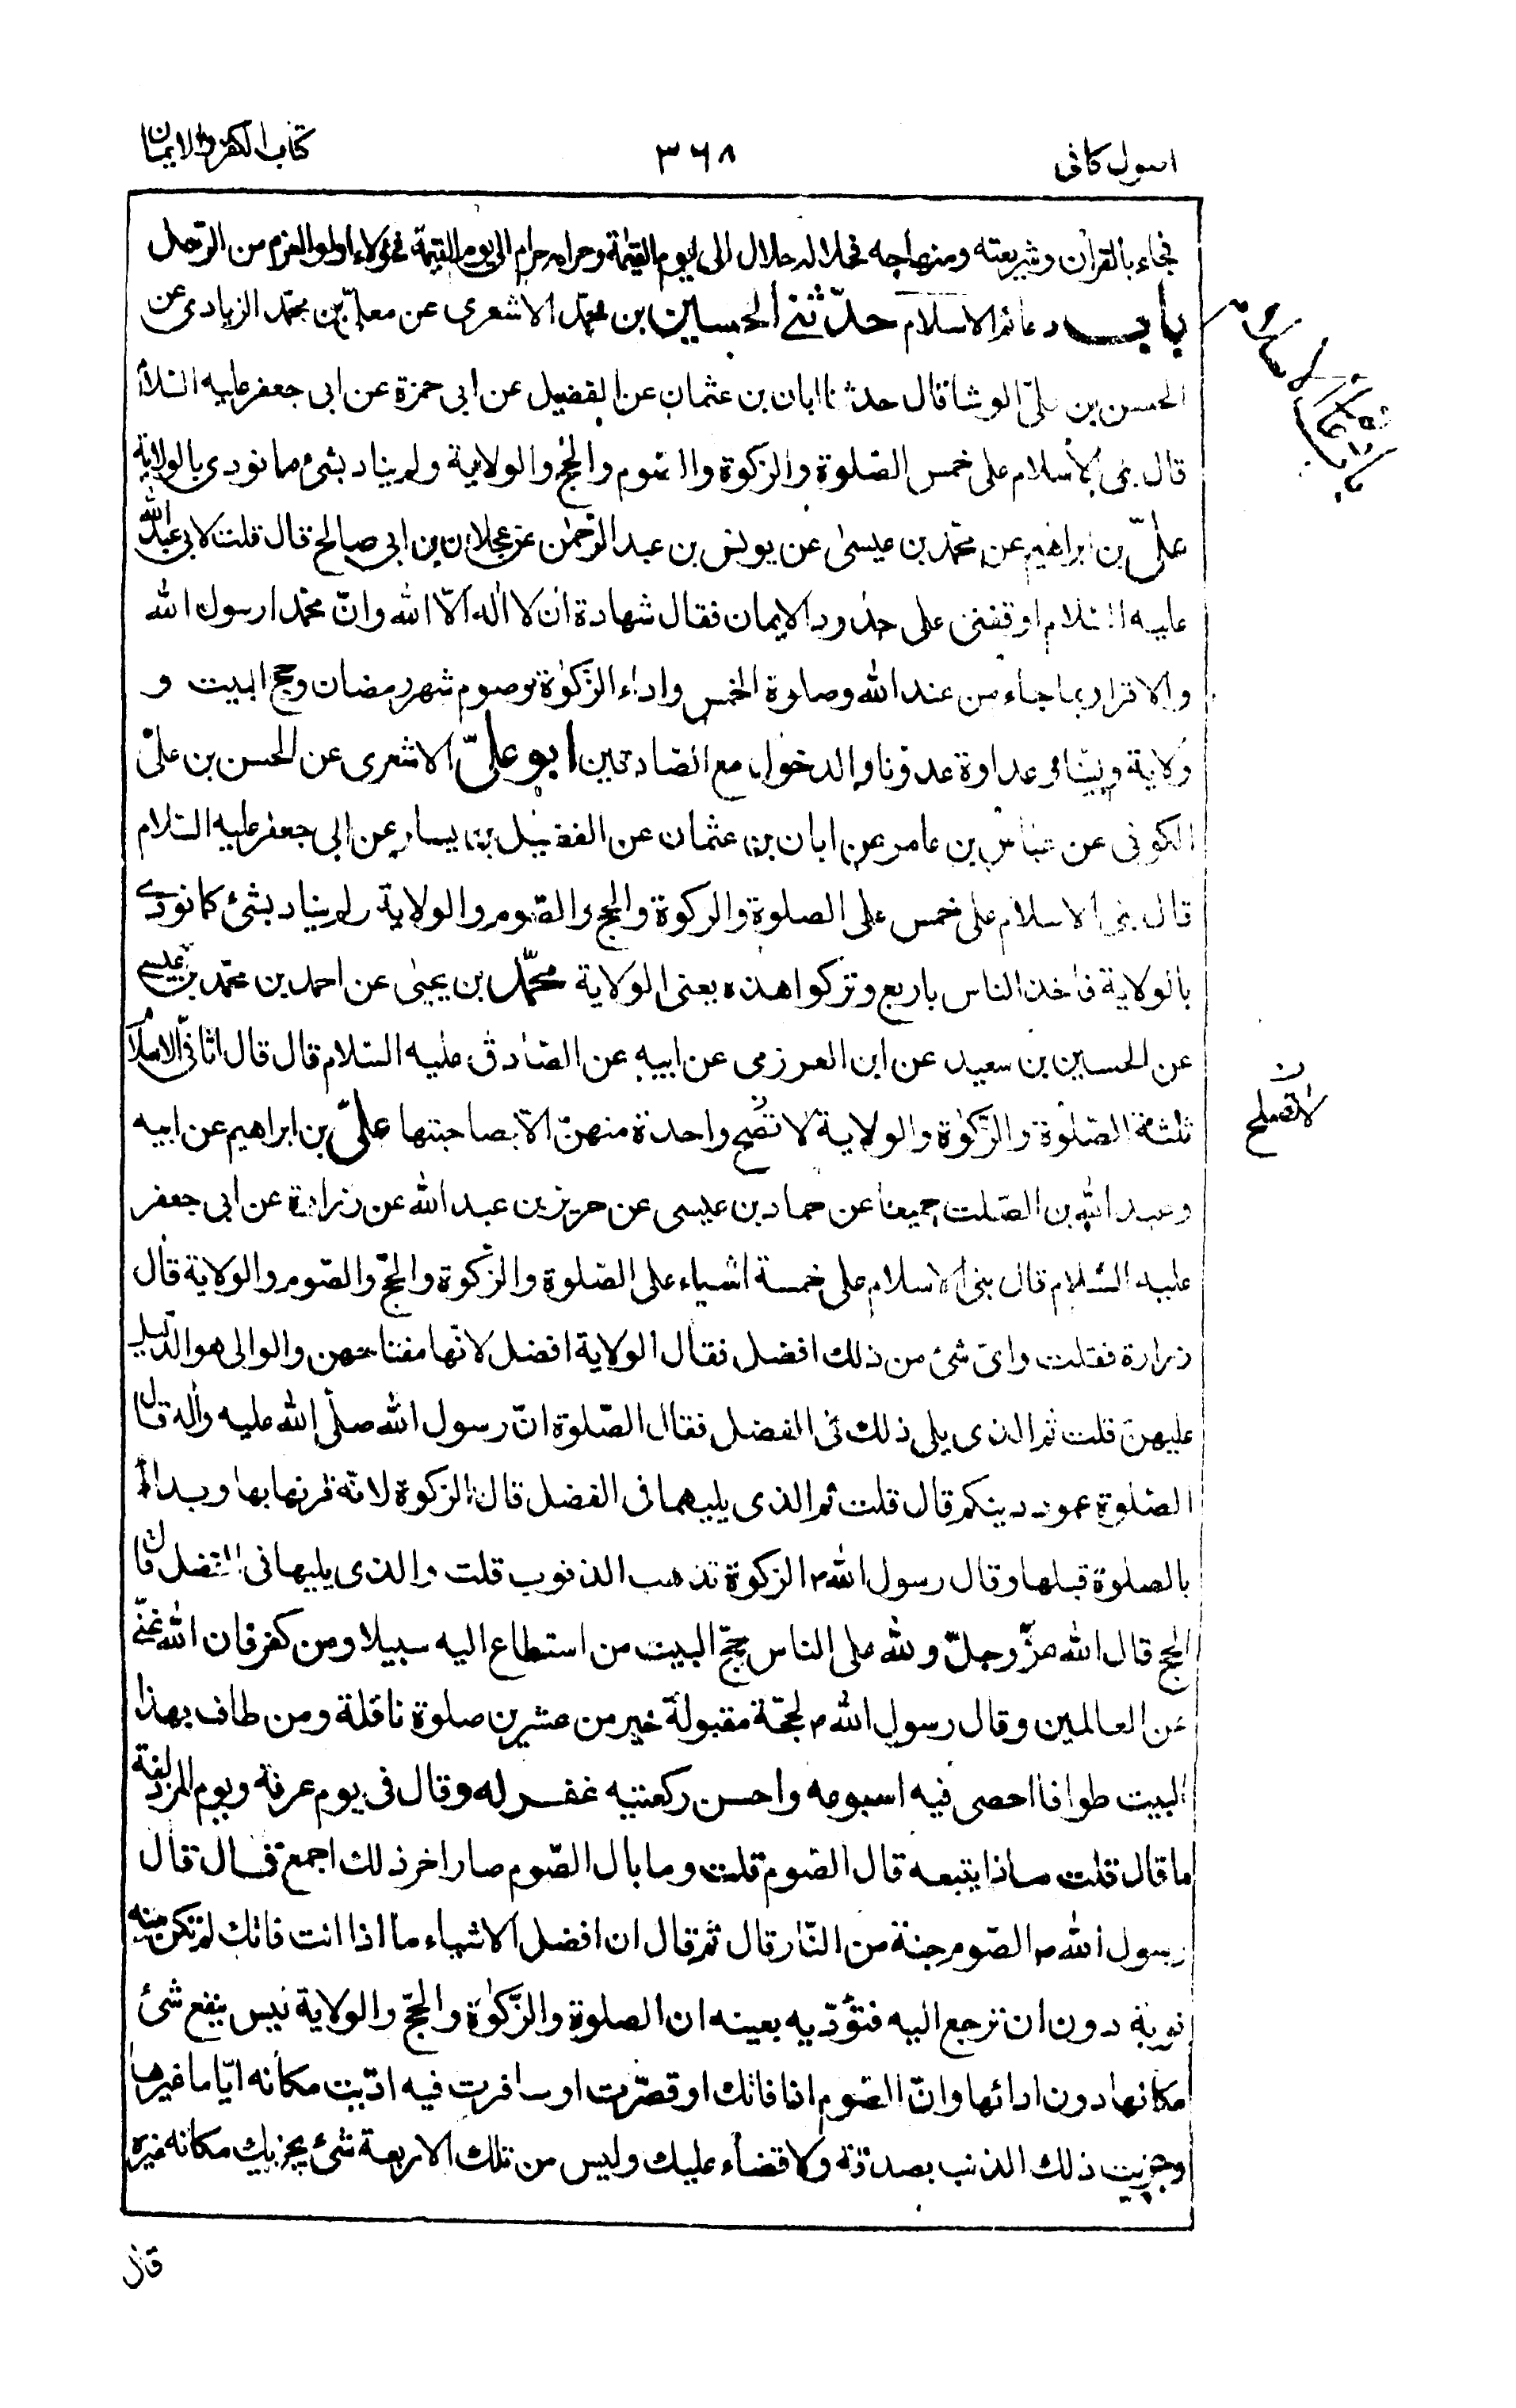 اصول كافى
٣٦٨
كتاب الكفر والايمان
فجاء بالقران وشريعته ومنهاجه فحلاله حلال الى يوم القيٰمة وحرامه حرام الى يوم القيٰمة فهؤلاء اولوالعزم من الرّسل
باب دعائم الاسلام حدّثنى الحسين بن محمّد الاشعرى عن معلّى بن محمّد الزيادى عن
الحسن بن علىّ الوشا قال حدثنا ابان بن عثمان عن الفضيل عن ابى حمزة عن ابى جعفر عليه السّلام
قال بنى الاسلام على خمس الصّلوة والزكوة والصّوم والحجّ والولاية ولم يناد بشئ ما نودى بالولاية
علىّ بن ابراهيم عن محمّد بن عيسىٰ عن يونس بن عبد الرّحمٰن عن عجلان بن ابى صالح قال قلت لابى عبد الله
عليه السّلام اوقفنى على حدود الايمان فقال شهادة ان لا اله الّا الله وانّ محمّدا رسول الله
والاقرار بما جاء من عند الله وصلوة الخمس واداء الزّكوٰة وصوم شهر رمضان وحجّ البيت و
ولاية وليّنا وعداوة عدوّنا والدخول مع الصّادقين ابو علىّ الاشعرى عن الحسن بن علىّ
الكوفى عن عبّاس بن عامر عن ابان بن عثمان عن الفضيل بن يسار عن ابى جعفر عليه السّلام
قال بنى الاسلام على خمس على الصلوة والزكوة والحج والصّوم والولاية ولم يناد بشئ كما نودى
بالولاية فاخذ الناس باربع وتركوا هذه يعنى الولاية محمّد بن يحيىٰ عن احمد بن محمّد بن عيسى
عن الحسين بن سعيد عن ابن العرزمى عن ابيه عن الصّادق عليه السّلام قال قال اثافىّ الاسلام
ثلثة الصّلوٰة والزّكوٰة والولاية لا تصحّ واحدة منهنّ الّا بصاحبتها علىّ بن ابراهيم عن ابيه
لا تصلح
وعبد الله بن الصّلت جميعا عن حماد بن عيسى عن حريز بن عبد الله عن زرارة عن ابى جعفر
عليه السّلام قال بنى الاسلام على خمسة اشياء على الصّلوة والزّكوة والحجّ والصّوم والولاية قال
زرارة فقلت واىّ شئ من ذلك افضل فقال الولاية افضل لانّها مفتاحهن والوالى هو الدّليل
عليهنّ قلت ثم الذى يلى ذلك فى الفضل فقال الصّلوة انّ رسول الله صلّى الله عليه واله قال
الصّلوة عمود دينكم قال قلت ثم الذى يليهما فى الفضل قال الزكوة لانّه قرنها بها وبدا
بالصلوة قبلها وقال رسول الله ص الزكوة تذهب الذنوب قلت والذى يليها فى الفضل قال
الحج قال الله عزّ وجلّ ولله على الناس حجّ البيت من استطاع اليه سبيلا ومن كفر فان الله غنىّ
عن العالمين وقال رسول الله ص لحجّة مقبولة خير من عشرين صلوة نافلة ومن طاف بهذا
البيت طوافا احصى فيه اسبوعه واحسن ركعتيه غفر له وقال فى يوم عرفة ويوم المزدلفة
ما قال قلت ماذا يتبعه قال الصّوم قلت وما بال الصّوم صار اخر ذلك اجمع قال قال
رسول الله ص الصّوم جنة من النّار قال ثم قال ان افضل الاشياء ما اذا انت فاتك لم تكن منه
توبة دون ان ترجع اليه فتؤدّيه بعينه ان الصلوة والزّكوٰة والحجّ والولاية ليس ينفع شئ
مكانها دون ادائها وانّ الصّوم اذا فاتك او قصّرت او سافرت فيه ادّيت مكانه ايّاما غيرها
وجزيت ذلك الذنب بصدقة ولا قضاء عليك وليس من تلك الاربعة شئ يجزيك مكانه غيره
قال